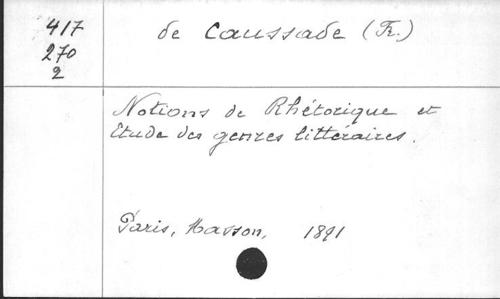 417
270
2
de Caussade (Fr.)
Notions de Rhétorique et
Etude des genres littéraires.
Paris, Masson, 1891